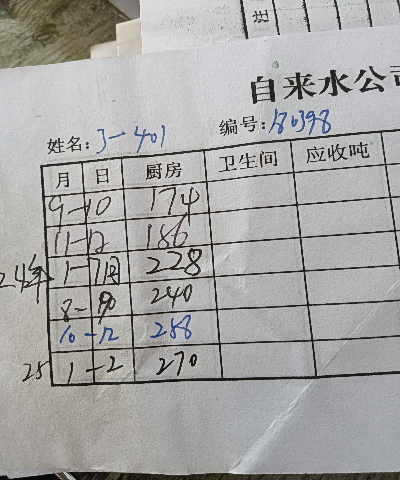 注
自来水公司
姓名: 3-401 编号: 180398
月 日 厨房 卫生间 应收吨
9-10 174
11-12 186
24年 1-7月 228
8-9 240
10-12 258
25 1-2 270